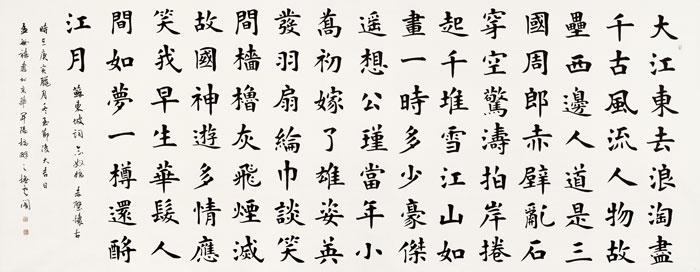 大江東去浪淘盡
千古風流人物故
壘西邊人道是三
國周郎赤壁亂石
穿空驚濤拍岸捲
起千堆雪江山如
畫一時多少豪傑
遥想公瑾當年小
喬初嫁了雄姿英
發羽扇綸巾談笑
間檣櫓灰飛煙滅
故國神遊多情應
笑我早生華髮人
間如夢一樽還酹
江月
蘇東坡詞念奴嬌赤壁懷古
庚寅臘月冬至節後大吉日